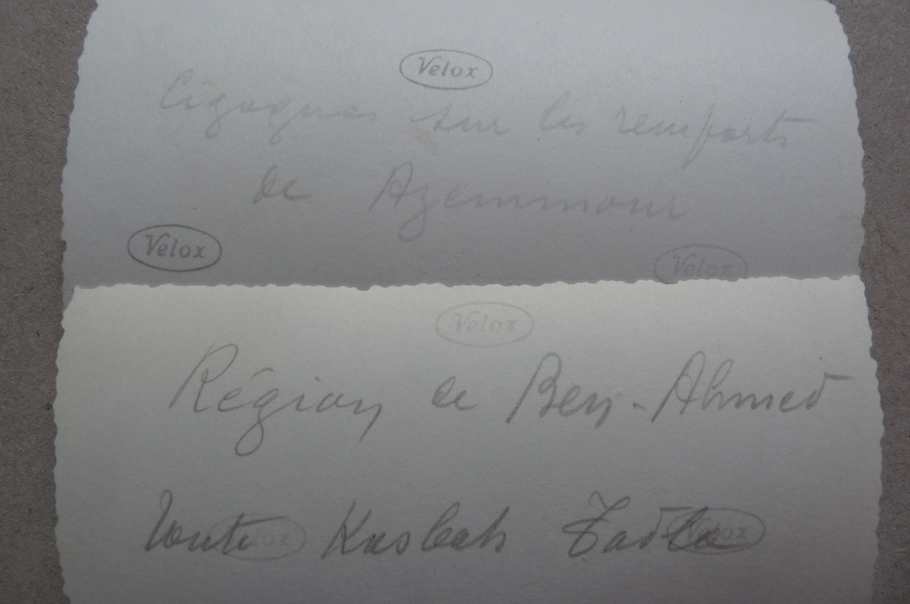 Velox
Cigognes sur les remparts
de Azemmour
Velox
Velox
Velox
Région de Ben-Ahmed
Velox
Velox
route Kasbah Tadla